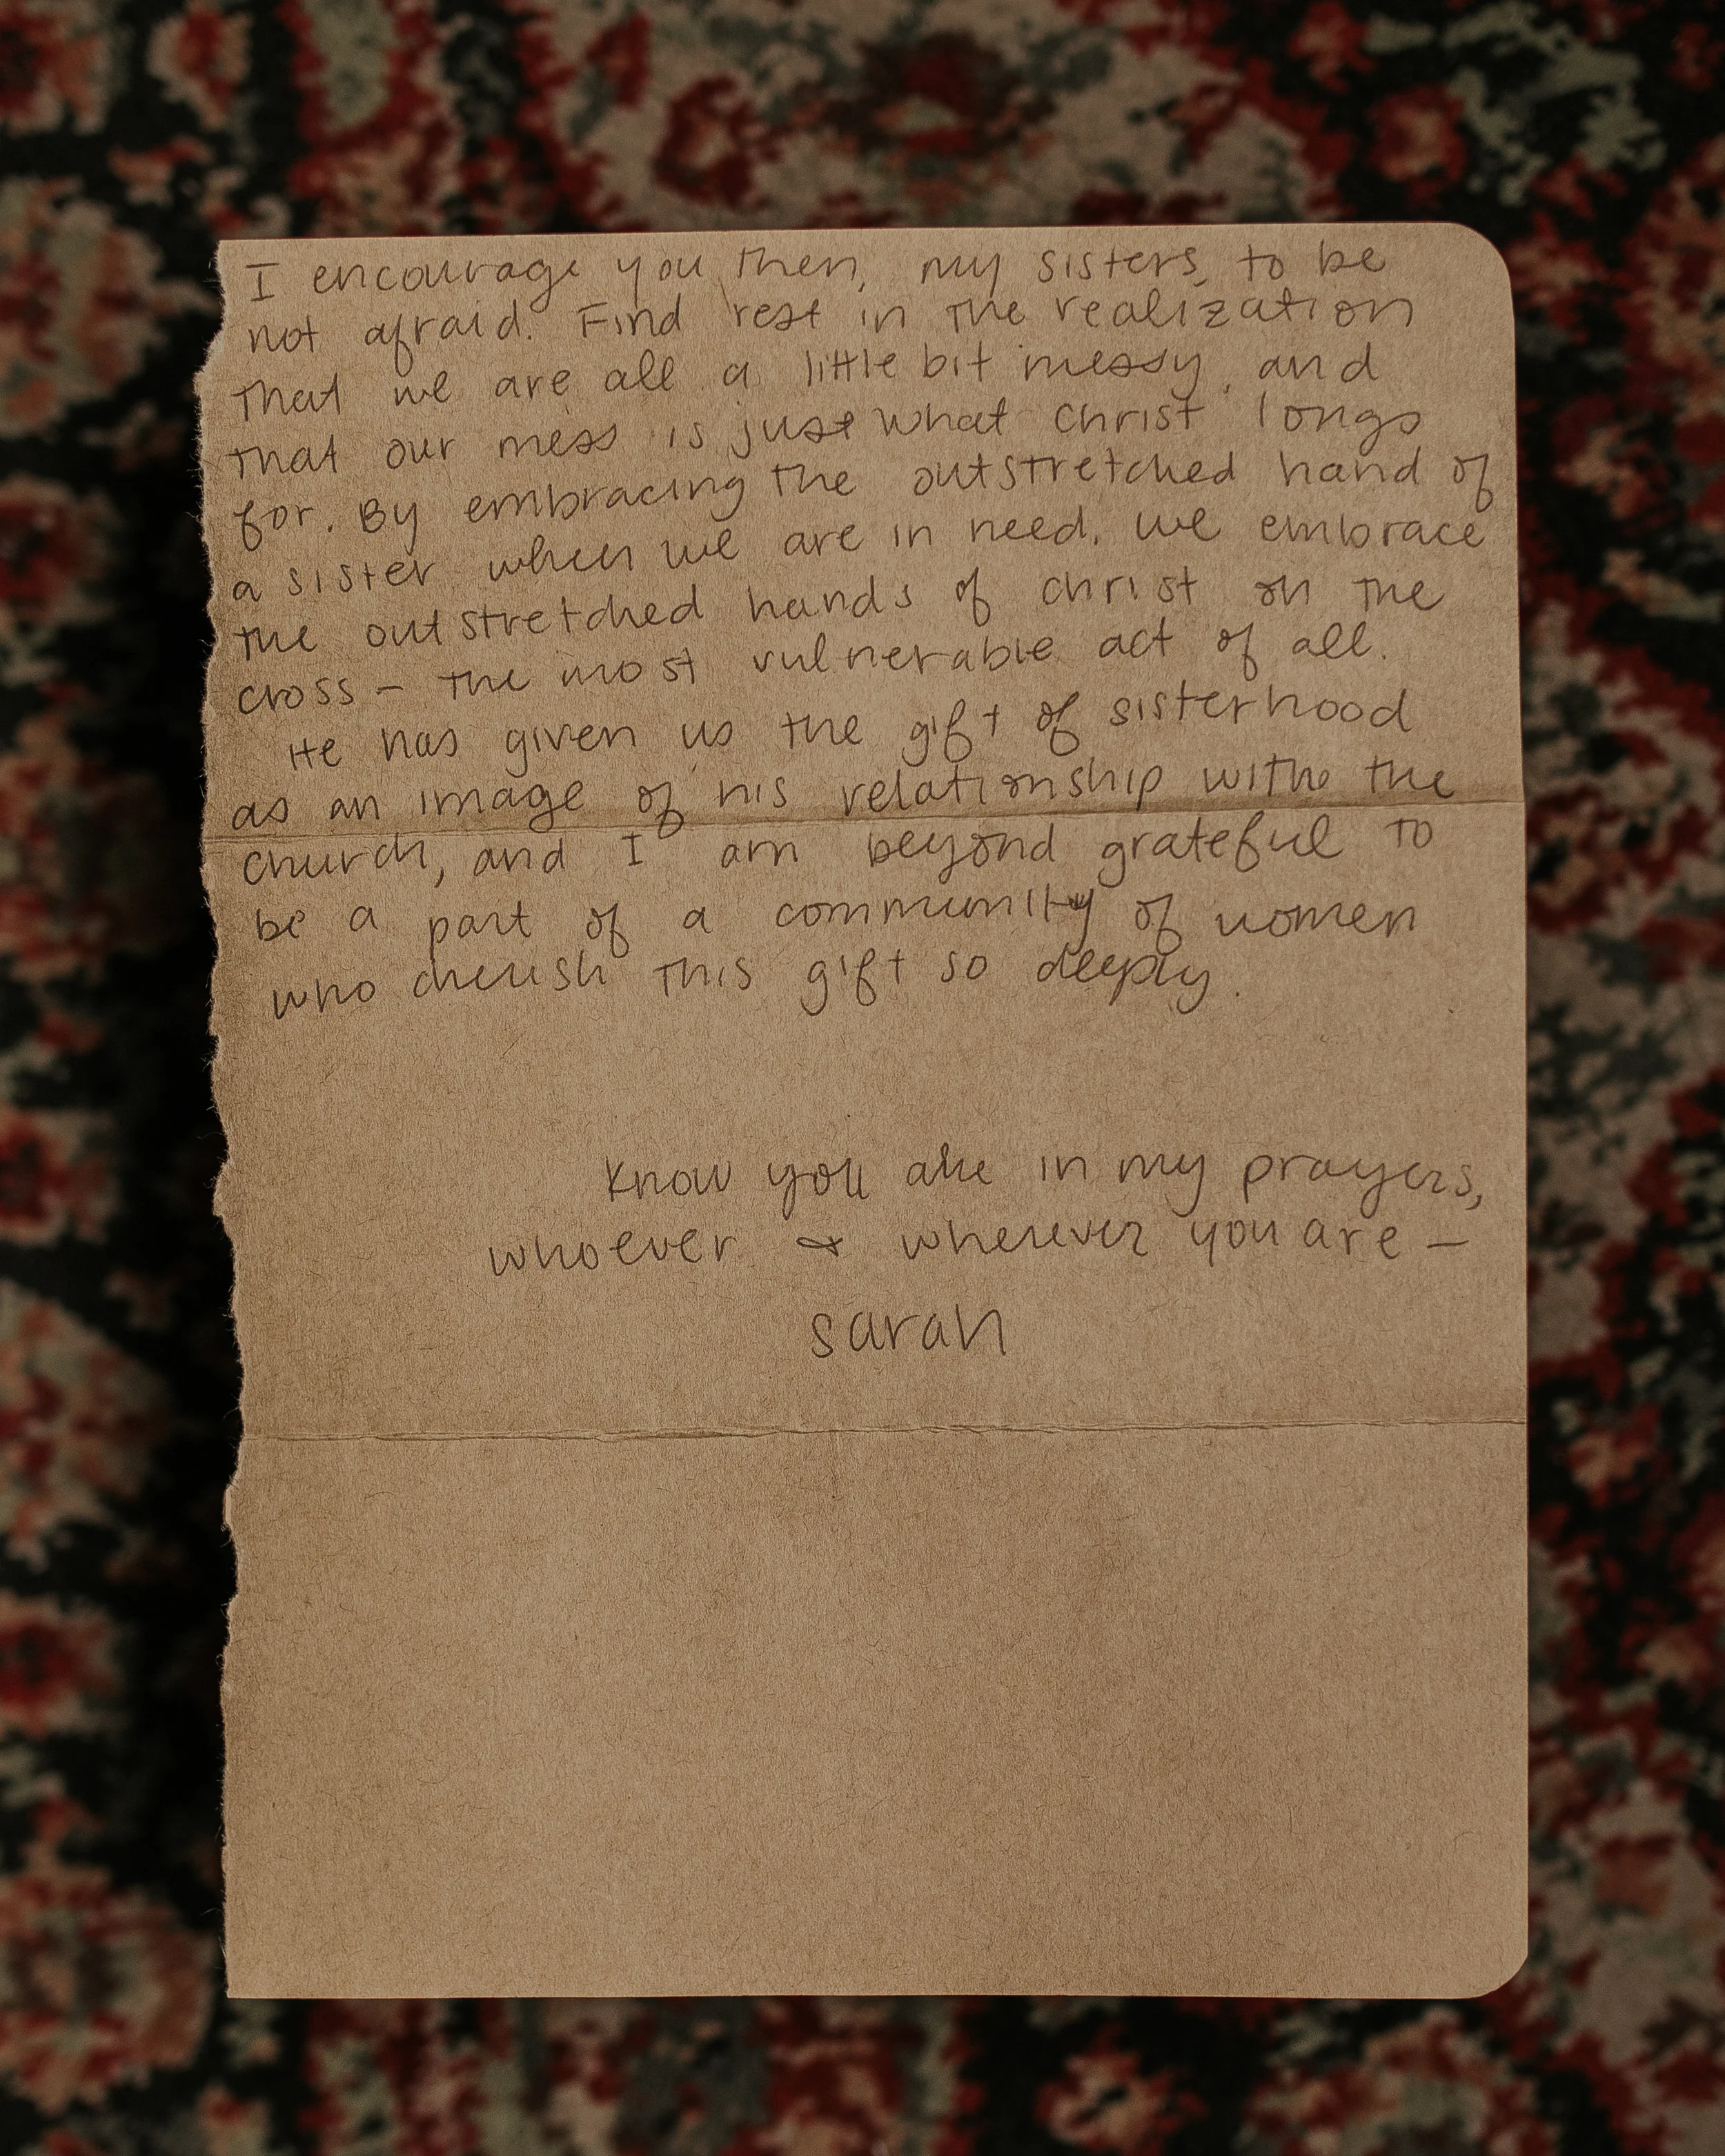 I encourage you then, my sisters, to be
not afraid. Find rest in the realization
that we are all a little bit messy, and
that our mess is just what Christ longs
for. By embracing the outstretched hand of
a sister when we are in need, we embrace
the outstretched hands of Christ on the
cross – the most vulnerable act of all.
He has given us the gift of sisterhood
as an image of his relationship withe the
church, and I am beyond grateful to
be a part of a community of women
who cherish this gift so deeply.
Know you are in my prayers,
whoever & wherever you are –
Sarah